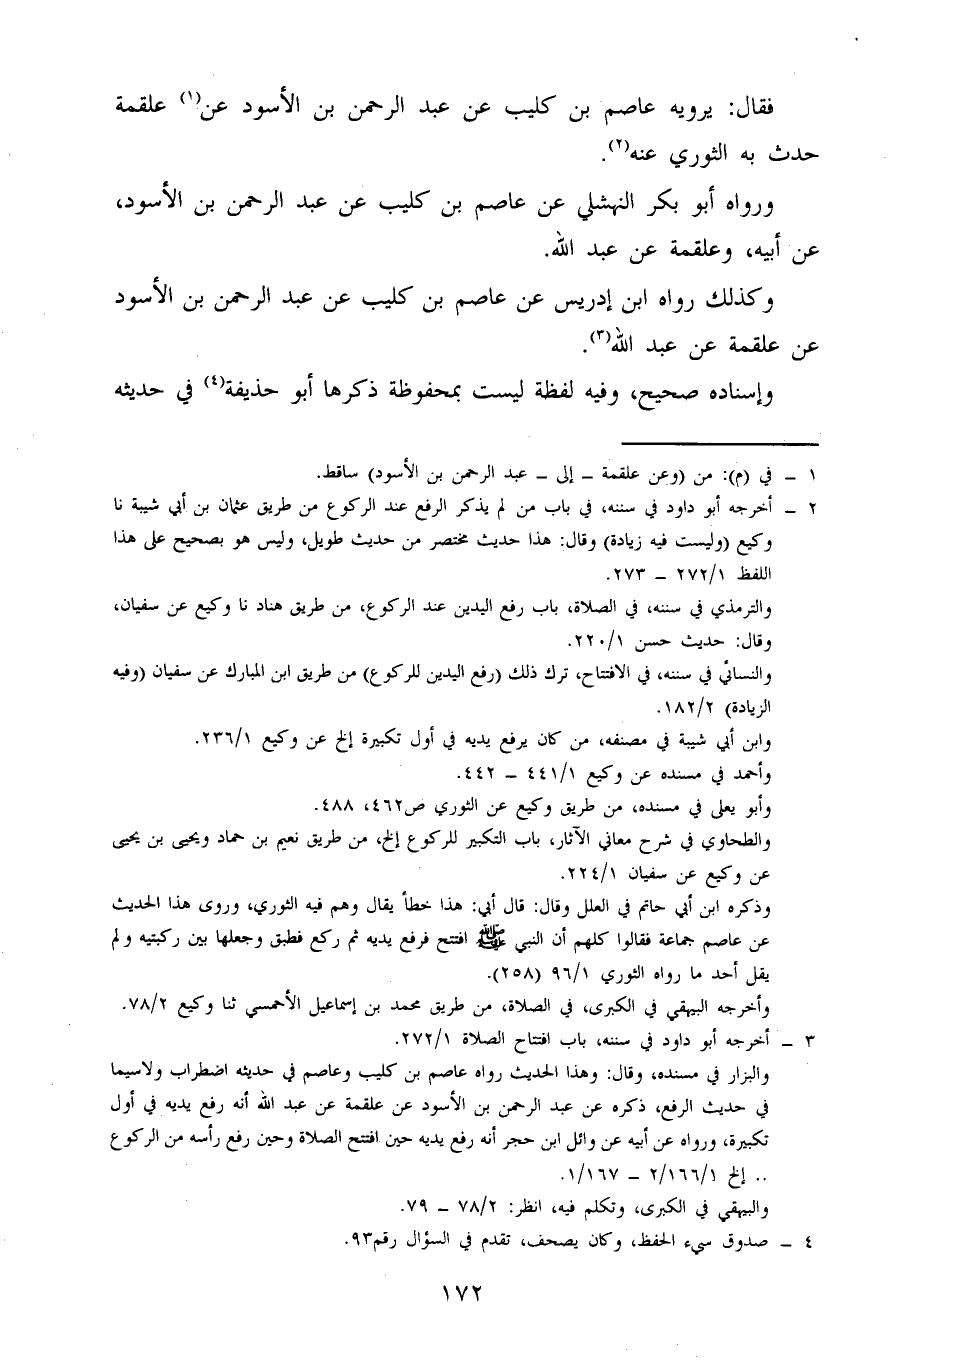 فقال: يرويه عاصم بن كليب عن عبد الرحمن بن الأسود عن(١) علقمة
حدث به الثوري عنه(٢).
ورواه أبو بكر النهشلي عن عاصم بن كليب عن عبد الرحمن بن الأسود،
عن أبيه، وعلقمة عن عبد الله.
وكذلك رواه ابن إدريس عن عاصم بن كليب عن عبد الرحمن بن الأسود
عن علقمة عن عبد الله(٣).
وإسناده صحيح، وفيه لفظة ليست بمحفوظة ذكرها أبو حذيفة(٤) في حديثه
١ - في (م): من (وعن علقمة - إلى - عبد الرحمن بن الأسود) ساقط.
٢ - أخرجه أبو داود في سننه، في باب من لم يذكر الرفع عند الركوع من طريق عثمان بن أبي شيبة نا
وكيع (وليست فيه زيادة) وقال: هذا حديث مختصر من حديث طويل، وليس هو بصحيح على هذا
اللفظ ٢٧٢/١ - ٢٧٣.
والترمذي في سننه، في الصلاة، باب رفع اليدين عند الركوع، من طريق هناد نا وكيع عن سفيان،
وقال: حديث حسن ٢٢٠/١.
والنسائي في سننه، في الافتتاح، ترك ذلك (رفع اليدين للركوع) من طريق ابن المبارك عن سفيان (وفيه
الزيادة) ١٨٢/٢.
وابن أبي شيبة في مصنفه، من كان يرفع يديه في أول تكبيرة إلخ عن وكيع ٢٣٦/١.
وأحمد في مسنده عن وكيع ٤٤١/١ - ٤٤٢.
وأبو يعلى في مسنده، من طريق وكيع عن الثوري ص٤٦٢، ٤٨٨.
والطحاوي في شرح معاني الآثار، باب التكبير للركوع إلخ، من طريق نعيم بن حماد ويحيى بن يحيى
عن وكيع عن سفيان ٢٢٤/١.
وذكره ابن أبي حاتم في العلل وقال: قال أبي: هذا خطأ يقال وهم فيه الثوري، وروى هذا الحديث
عن عاصم جماعة فقالوا كلهم أن النبي ﷺ افتتح فرفع يديه ثم ركع فطبق وجعلها بين ركبتيه ولم
يقل أحد ما رواه الثوري ٩٦/١ (٢٥٨).
وأخرجه البيهقي في الكبرى، في الصلاة، من طريق محمد بن إسماعيل الأحمسي ثنا وكيع ٧٨/٢.
٣ - أخرجه أبو داود في سننه، باب افتتاح الصلاة ٢٧٢/١.
والبزار في مسنده، وقال: وهذا الحديث رواه عاصم بن كليب وعاصم في حديثه اضطراب ولاسيما
في حديث الرفع، ذكره عن عبد الرحمن بن الأسود عن علقمة عن عبد الله أنه رفع يديه في أول
تكبيرة، ورواه عن أبيه عن وائل ابن حجر أنه رفع يديه حين افتتح الصلاة وحين رفع رأسه من الركوع
.. إلخ ٢/١٦٦/١ - ١/١٦٧.
والبيهقي في الكبرى، وتكلم فيه، انظر: ٧٨/٢ - ٧٩.
٤ - صدوق سيء الحفظ، وكان يصحف، تقدم في السؤال رقم٩٣.
١٧٢